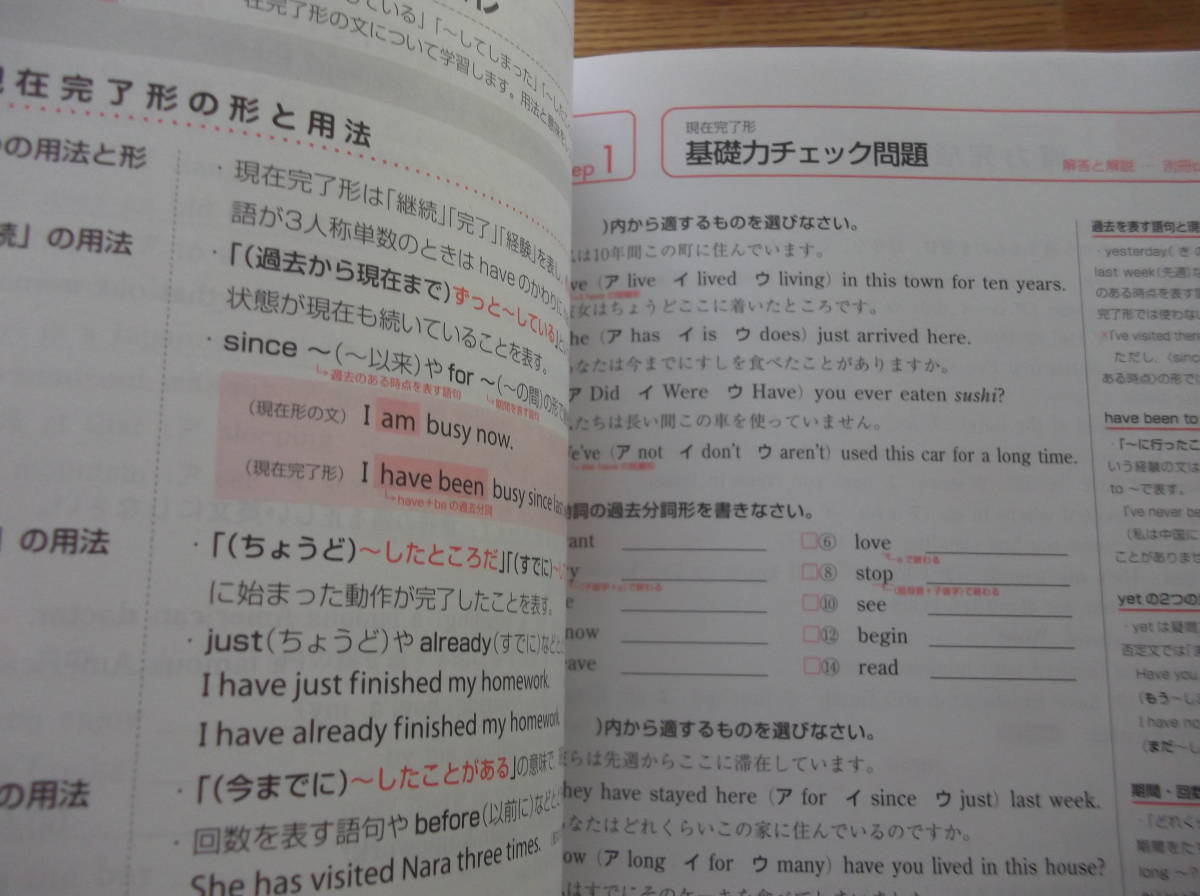 在完了形の文について学習します。
在完了形の形と用法
の用法と形
現在完了形は「継続」「完了」「経験」を表し
語が3人称単数のときは haveのかわりに
」の用法
「(過去から現在まで)ずっと〜している」
状態が現在も続いていることを表す。
・since 〜(〜以来)や for 〜(〜の間)の形で
過去のある時点を表す語句
期間を表す語句
(現在形の文) I am busy now.
(現在完了形) I have been busy since last
have+beの過去分詞
」の用法
・「(ちょうど)〜したところだ」「(すでに)
に始まった動作が完了したことを表す。
・just(ちょうど)や already(すでに)など
I have just finished my homework.
I have already finished my homework.
の用法
・「(今までに)〜したことがある」の意味で
・回数を表す語句や before(以前に)など
She has visited Nara three times.
1
現在完了形
基礎力チェック問題
解答と解説
)内から適するものを選びなさい。
は10年間この町に住んでいます。
ve (ア live イ lived ウ living) in this town for ten years.
女はちょうどここに着いたところです。
he (ア has イ is ウ does) just arrived here.
なたは今までにすしを食べたことがありますか。
ア Did イ Were ウ Have) you ever eaten sushi?
たちは長い間この車を使っていません。
e've (ア not イ don't ウ aren't) used this car for a long time.
詞の過去分詞形を書きなさい。
ant
⑥ love
eで終わる
y
⑧ stop
e
⑩ see
now
⑫ begin
eave
⑭ read
)内から適するものを選びなさい。
らは先週からここに滞在しています。
hey have stayed here (ア for イ since ウ just) last week.
なたはどれくらいこの家に住んでいるのですか。
ow (ア long イ for ウ many) have you lived in this house?
はすでにそのケーキを食べてしまいました
過去を表す語句と現
・yesterday(きの
last week(先週)な
のある時点を表す
完了形では使わな
×I've visited there
ただし,(sinc
ある時点)の形で
have been to
・「〜に行ったこ
いう経験の文は
to 〜で表す。
I've never be
(私は中国に
ことがありませ
yetの2つの
・yetは疑問
否定文では「ま
Have you
(もう〜し
I have no
(まだ〜し
期間・回数
・「どれく
期間をた
long 〜